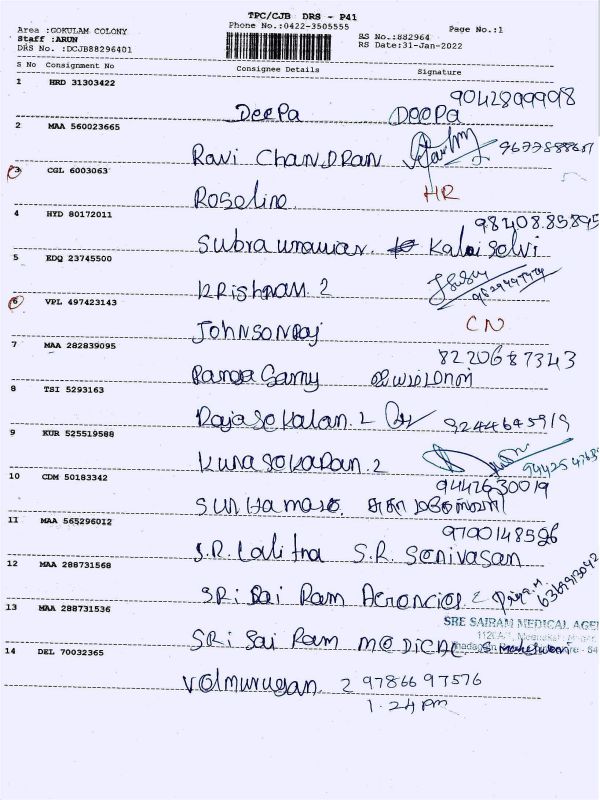 TPC/CJB DRS - P41
Area :GOKULAM COLONY Phone No.:0422-3505555 Page No.:1
Staff :ARUN RS No.:882964
DRS No. :DCJB88296401 RS Date:31-Jan-2022
S No Consignment No Consignee Details Signature
1 HRD 31303422
9042809998
Deepa Deepa
2 MAA 560023665
Ravi Chandran
3 CGL 6003063
Roseline HR
4 HYD 80172011
9840885895
Kalaiselvi
5 EDQ 23745500
Krishnan. 2
6 VPL 497423143
Johnsonraj CN
7 MAA 282839095
8220687343
Ranga Samy
8 TSI 5293163
Rajasekalan. 2 9244645919
9 KUR 525519588
Kunasekaran. 2
10 CDM 50183342
9442630019
11 MAA 565296012
9790148596
S.R. Lalitha S.R. Senivasan
12 MAA 288731568
Sri Sai Ram Agencies 2
13 MAA 288731536
SRE SAIRAM MEDICAL AGE
Sri Sai Ram Medical
14 DEL 70032365
Velmurugan. 2 9786697576
1.24 pm